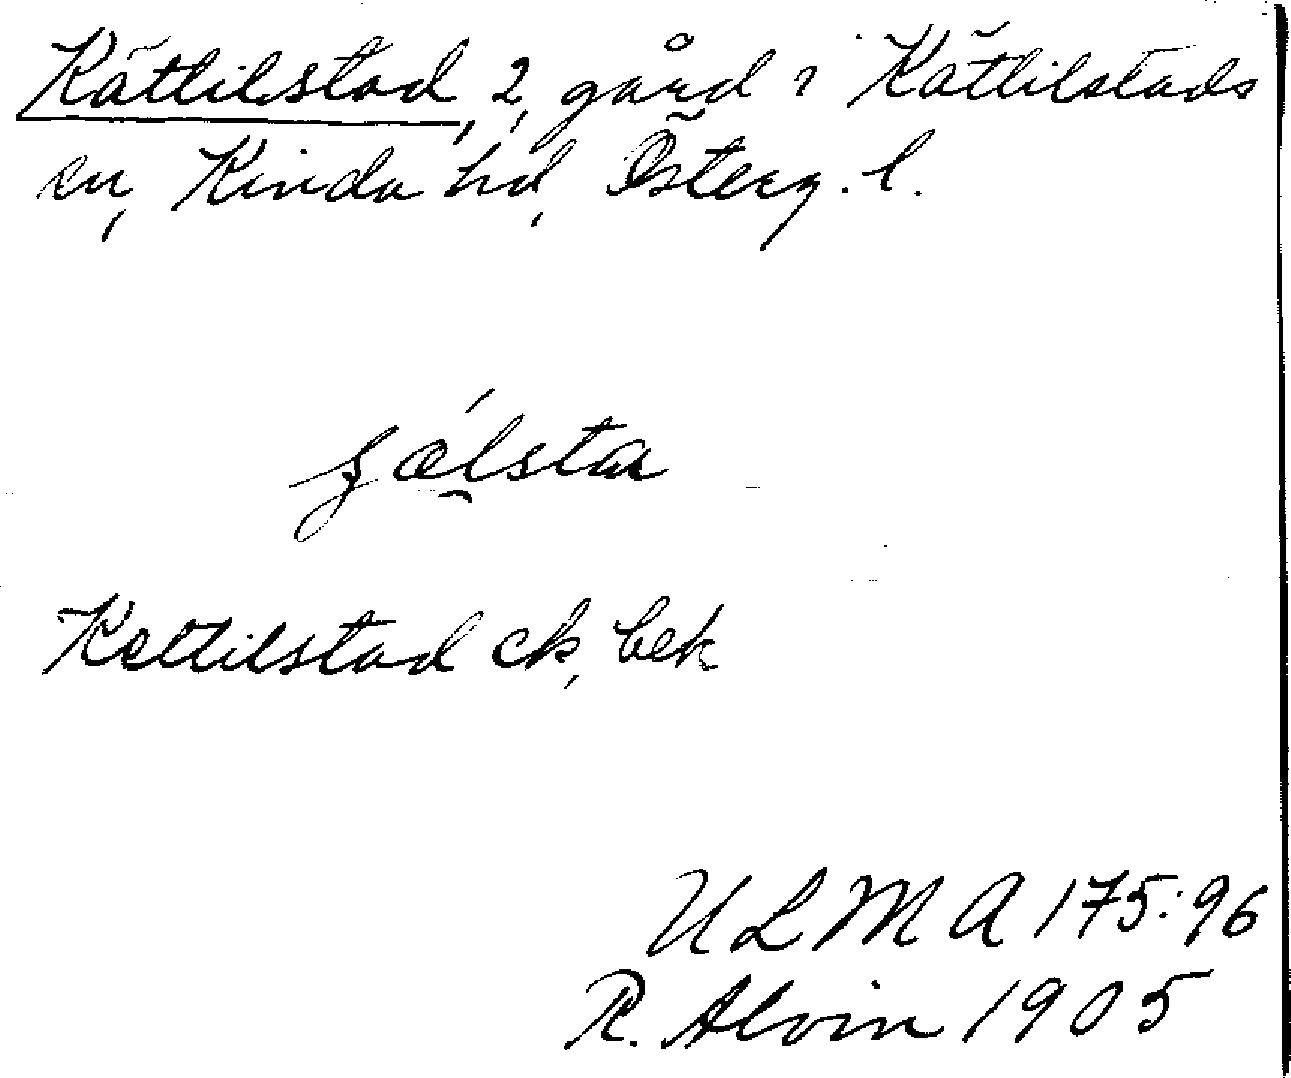 Kättilstad, 2, gård i Kättilstads
sn, Kinda hd, Österg. l.
Kettilstad ek, bek
ULMA 175:96
R. Alvin 1905